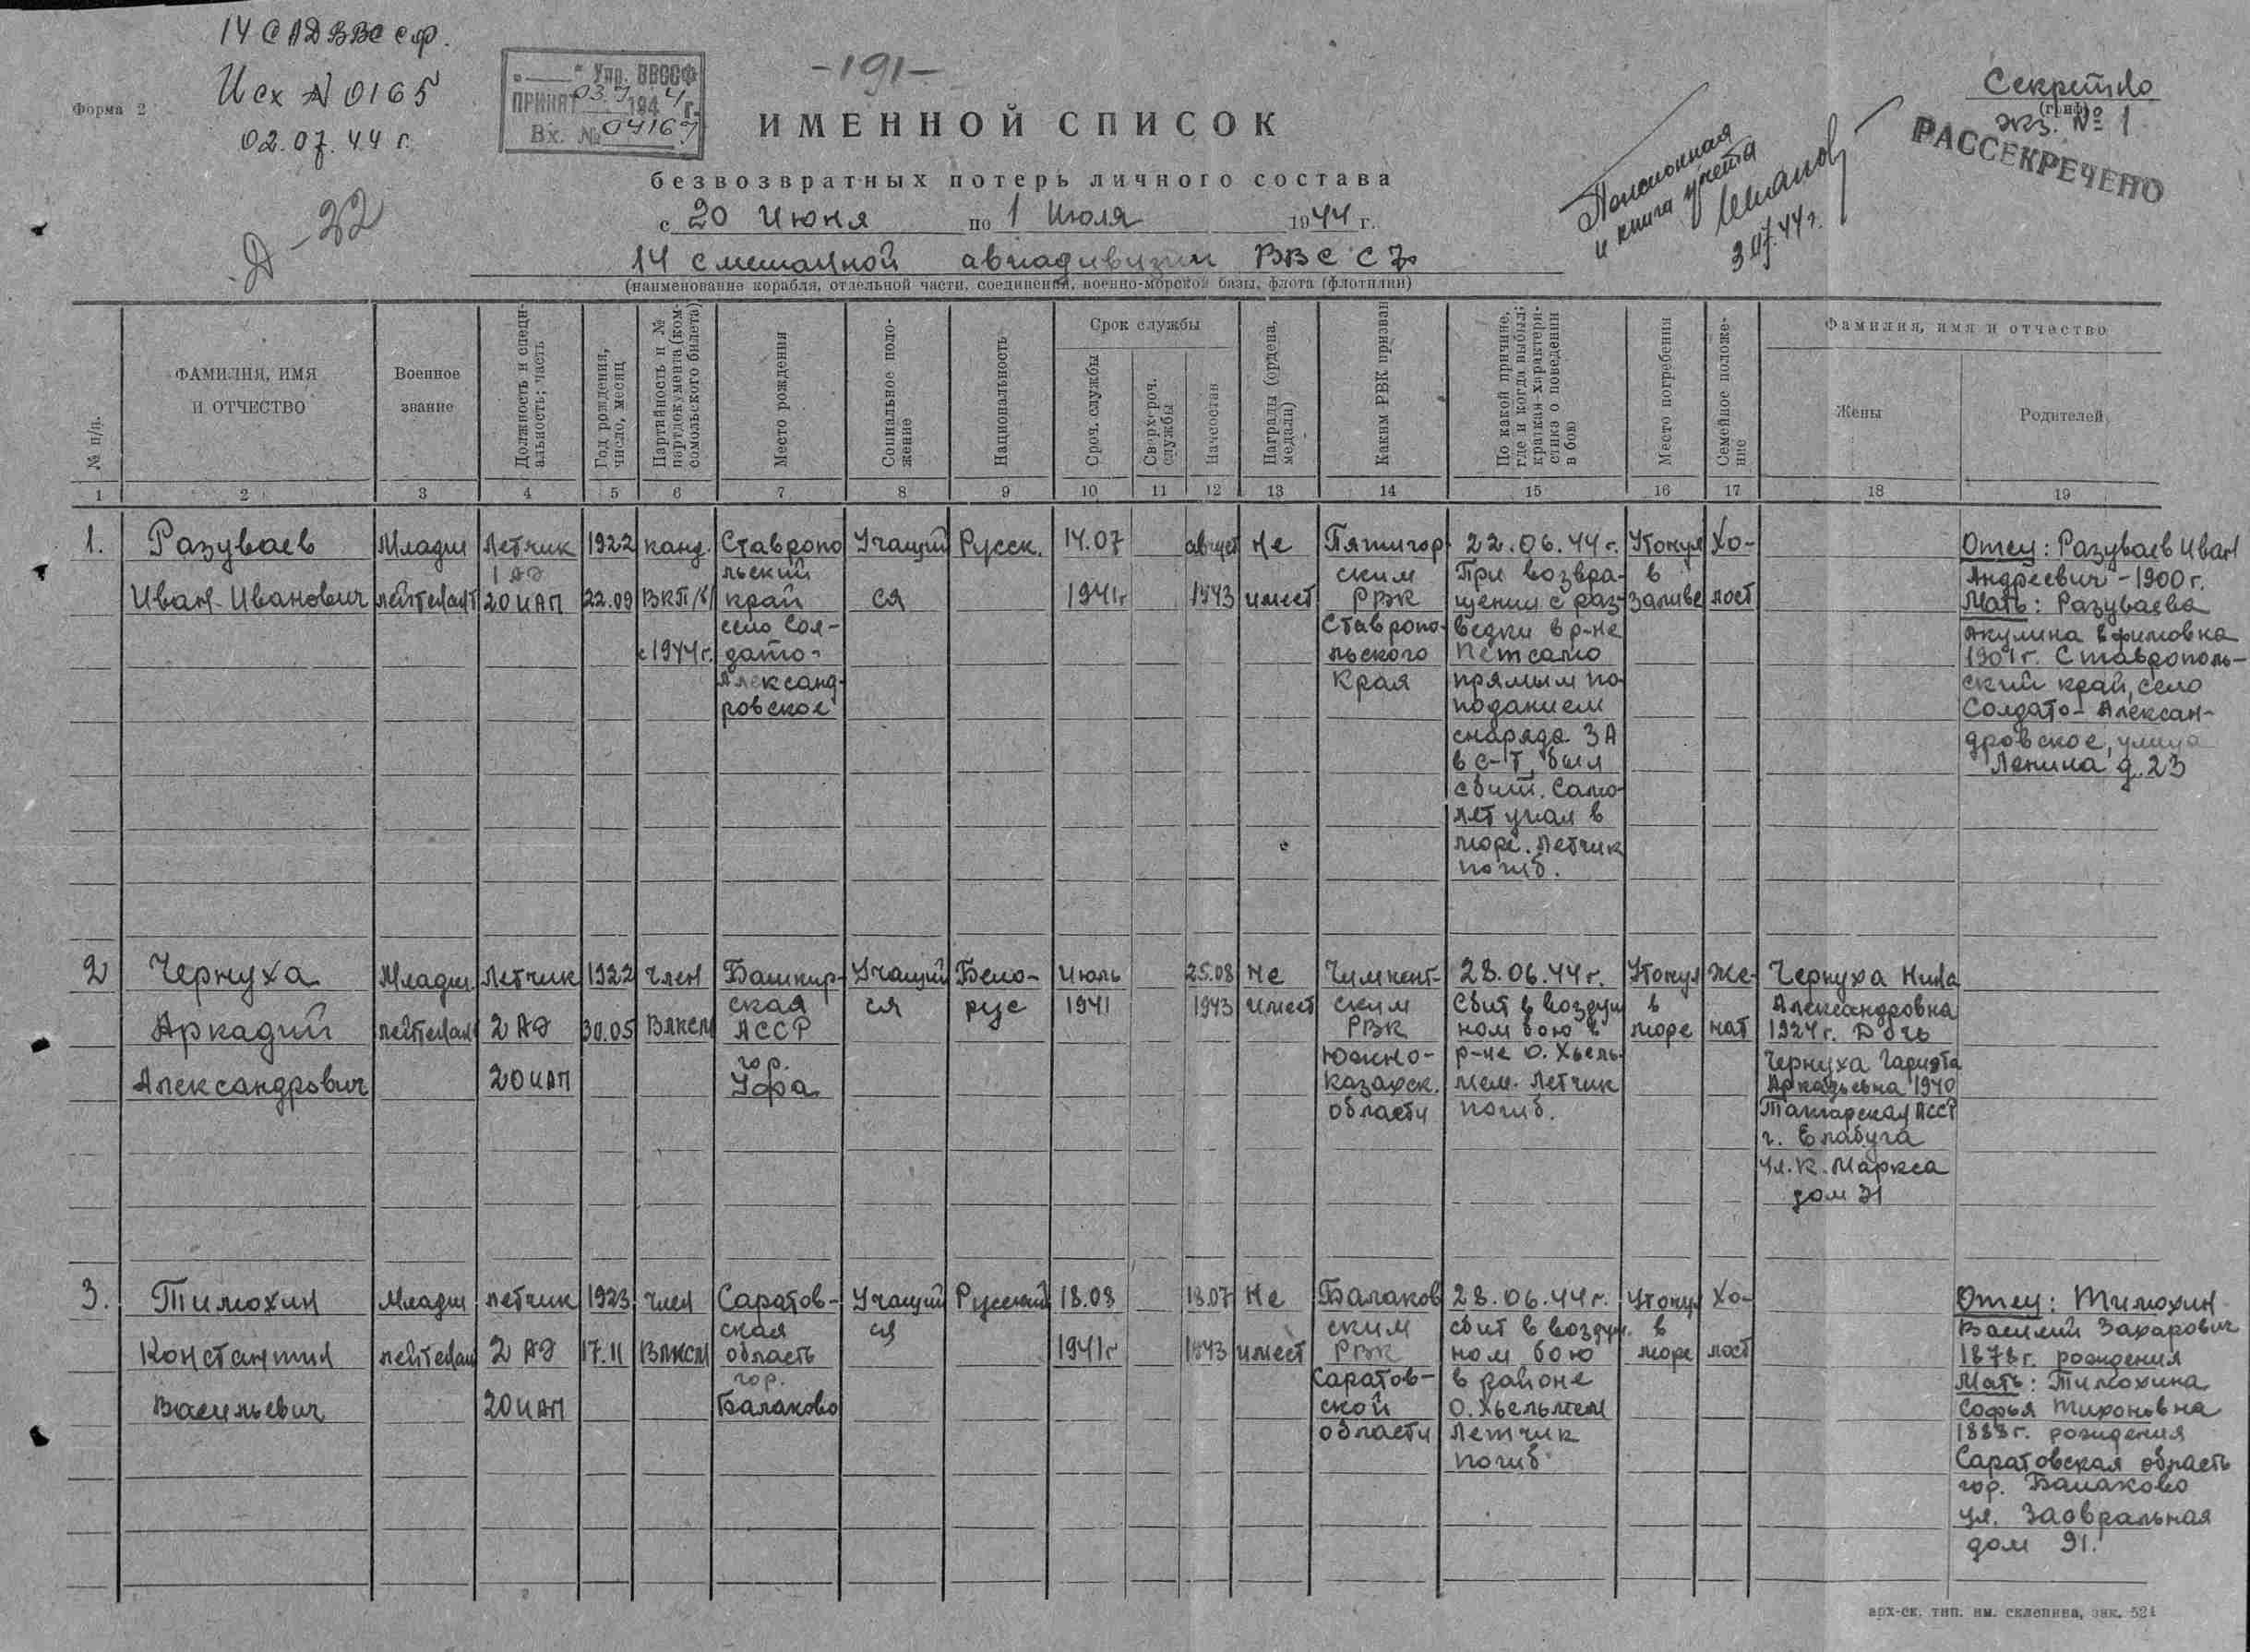 14 САДВВС СФ.
Исх № 0165
02.07.44 г.
Форма 2
Упр. ВВССФ
ПРИНЯТ 03.7 1944 г.
Вх. № 04167
-191-
Секретно
(гриф)
экз. № 1
РАССЕКРЕЧЕНО
Д-22
ИМЕННОЙ СПИСОК
безвозвратных потерь личного состава
с 20 Июня по 1 Июля 1944 г.
14 смешанной авиадивизии ВВС СФ
(наименование корабля, отдельной части, соединения, военно-морской базы, флота (флотилии)
и книга учета
3.07.44 г.
№ п/п.
ФАМИЛИЯ, ИМЯ
И ОТЧЕСТВО
Военное
звание
Должность и специ-
альность; часть
Год рождения,
число, месяц
Партийность и №
партдокумента (ком-
сомольского билета)
Место рождения
Социальное поло-
жение
Национальность
Срок службы
Сроч. службы
Сверхсроч.
службы
Начсостав
Награды (ордена,
медали)
Каким РВК призван
По какой причине,
где и когда выбыл;
краткая характери-
стика о поведении
в бою
Место погребения
Семейное положе-
ние
Фамилия, имя и отчество
Жены
Родителей
1 2 3 4 5 6 7 8 9 10 11 12 13 14 15 16 17 18 19
1.
Разуваев
Иван Иванович
Младш
лейтенант
Летчик
1 АЭ
20 ИАП
1922
22.09
канд.
ВКП/б/
с 1944 г.
Ставропо
льский
край
село Сол-
дато-
Александ-
ровское
Учащий
ся
Русск.
14.07
1941г
август
1943
Не
имеет
Пятигор
ским
РВК
Ставропо-
льского
Края
22.06.44 г.
При возвра-
щении с раз-
ведки в р-не
Петсамо
прямым по-
поданием
снаряда ЗА
в с-т, был
сбит. Само-
лет упал в
море. Летчик
погиб.
Утонул
в
заливе
Хо-
лост
Отец: Разуваев Иван
Андреевич - 1900 г.
Мать: Разуваева
Акулина Ефимовна
1901г. Ставрополь-
ский край, село
Солдато-Алексан-
дровское, улица
Ленина д. 23
2
Чернуха
Аркадий
Александрович
Младш.
лейтенант
Летчик
2 АЭ
20 ИАП
1922
30.05
член
ВЛКСМ
Башкир-
ская
АССР
гор.
Уфа
Учащий
ся
Бело-
рус
Июль
1941
25.08
1943
Не
имеет
Чимкент-
ским
РВК
Южно-
Казахск.
области
28.06.44 г.
Сбит в воздуш
ном бою в
р-не о. Хьель-
мем. Летчик
погиб.
Утонул
в
море
Же-
нат
Чернуха Нина
Александровна
1924 г. Дочь
Чернуха Гариэта
Аркадьевна 1940
Татарская АССР
г. Елабуга
ул. К. Маркса
дом 31
3.
Тимохин
Константин
Васильевич
Младш
лейтенант
летчик
2 АЭ
20 ИАП
1923
17.11
член
ВЛКСМ
Саратов-
ская
область
гор.
Балаково
Учащий
ся
Русский
18.08
1941г
18.07
1943
Не
имеет
Балаков
ским
РВК
Саратов-
ской
области
28.06.44 г.
сбит в воздуш.
ном бою
в районе
О. Хьельмем
Летчик
погиб
Утонул
в
море
Хо-
лост
Отец: Тимохин
Василий Захарович
1878 г. рождения
Мать: Тимохина
Софья Тихоновна
1888 г. рождения
Саратовская область
гор. Балаково
ул. Заовральная
дом 91.
арх-ск. тип. им. склепина, зак. 521